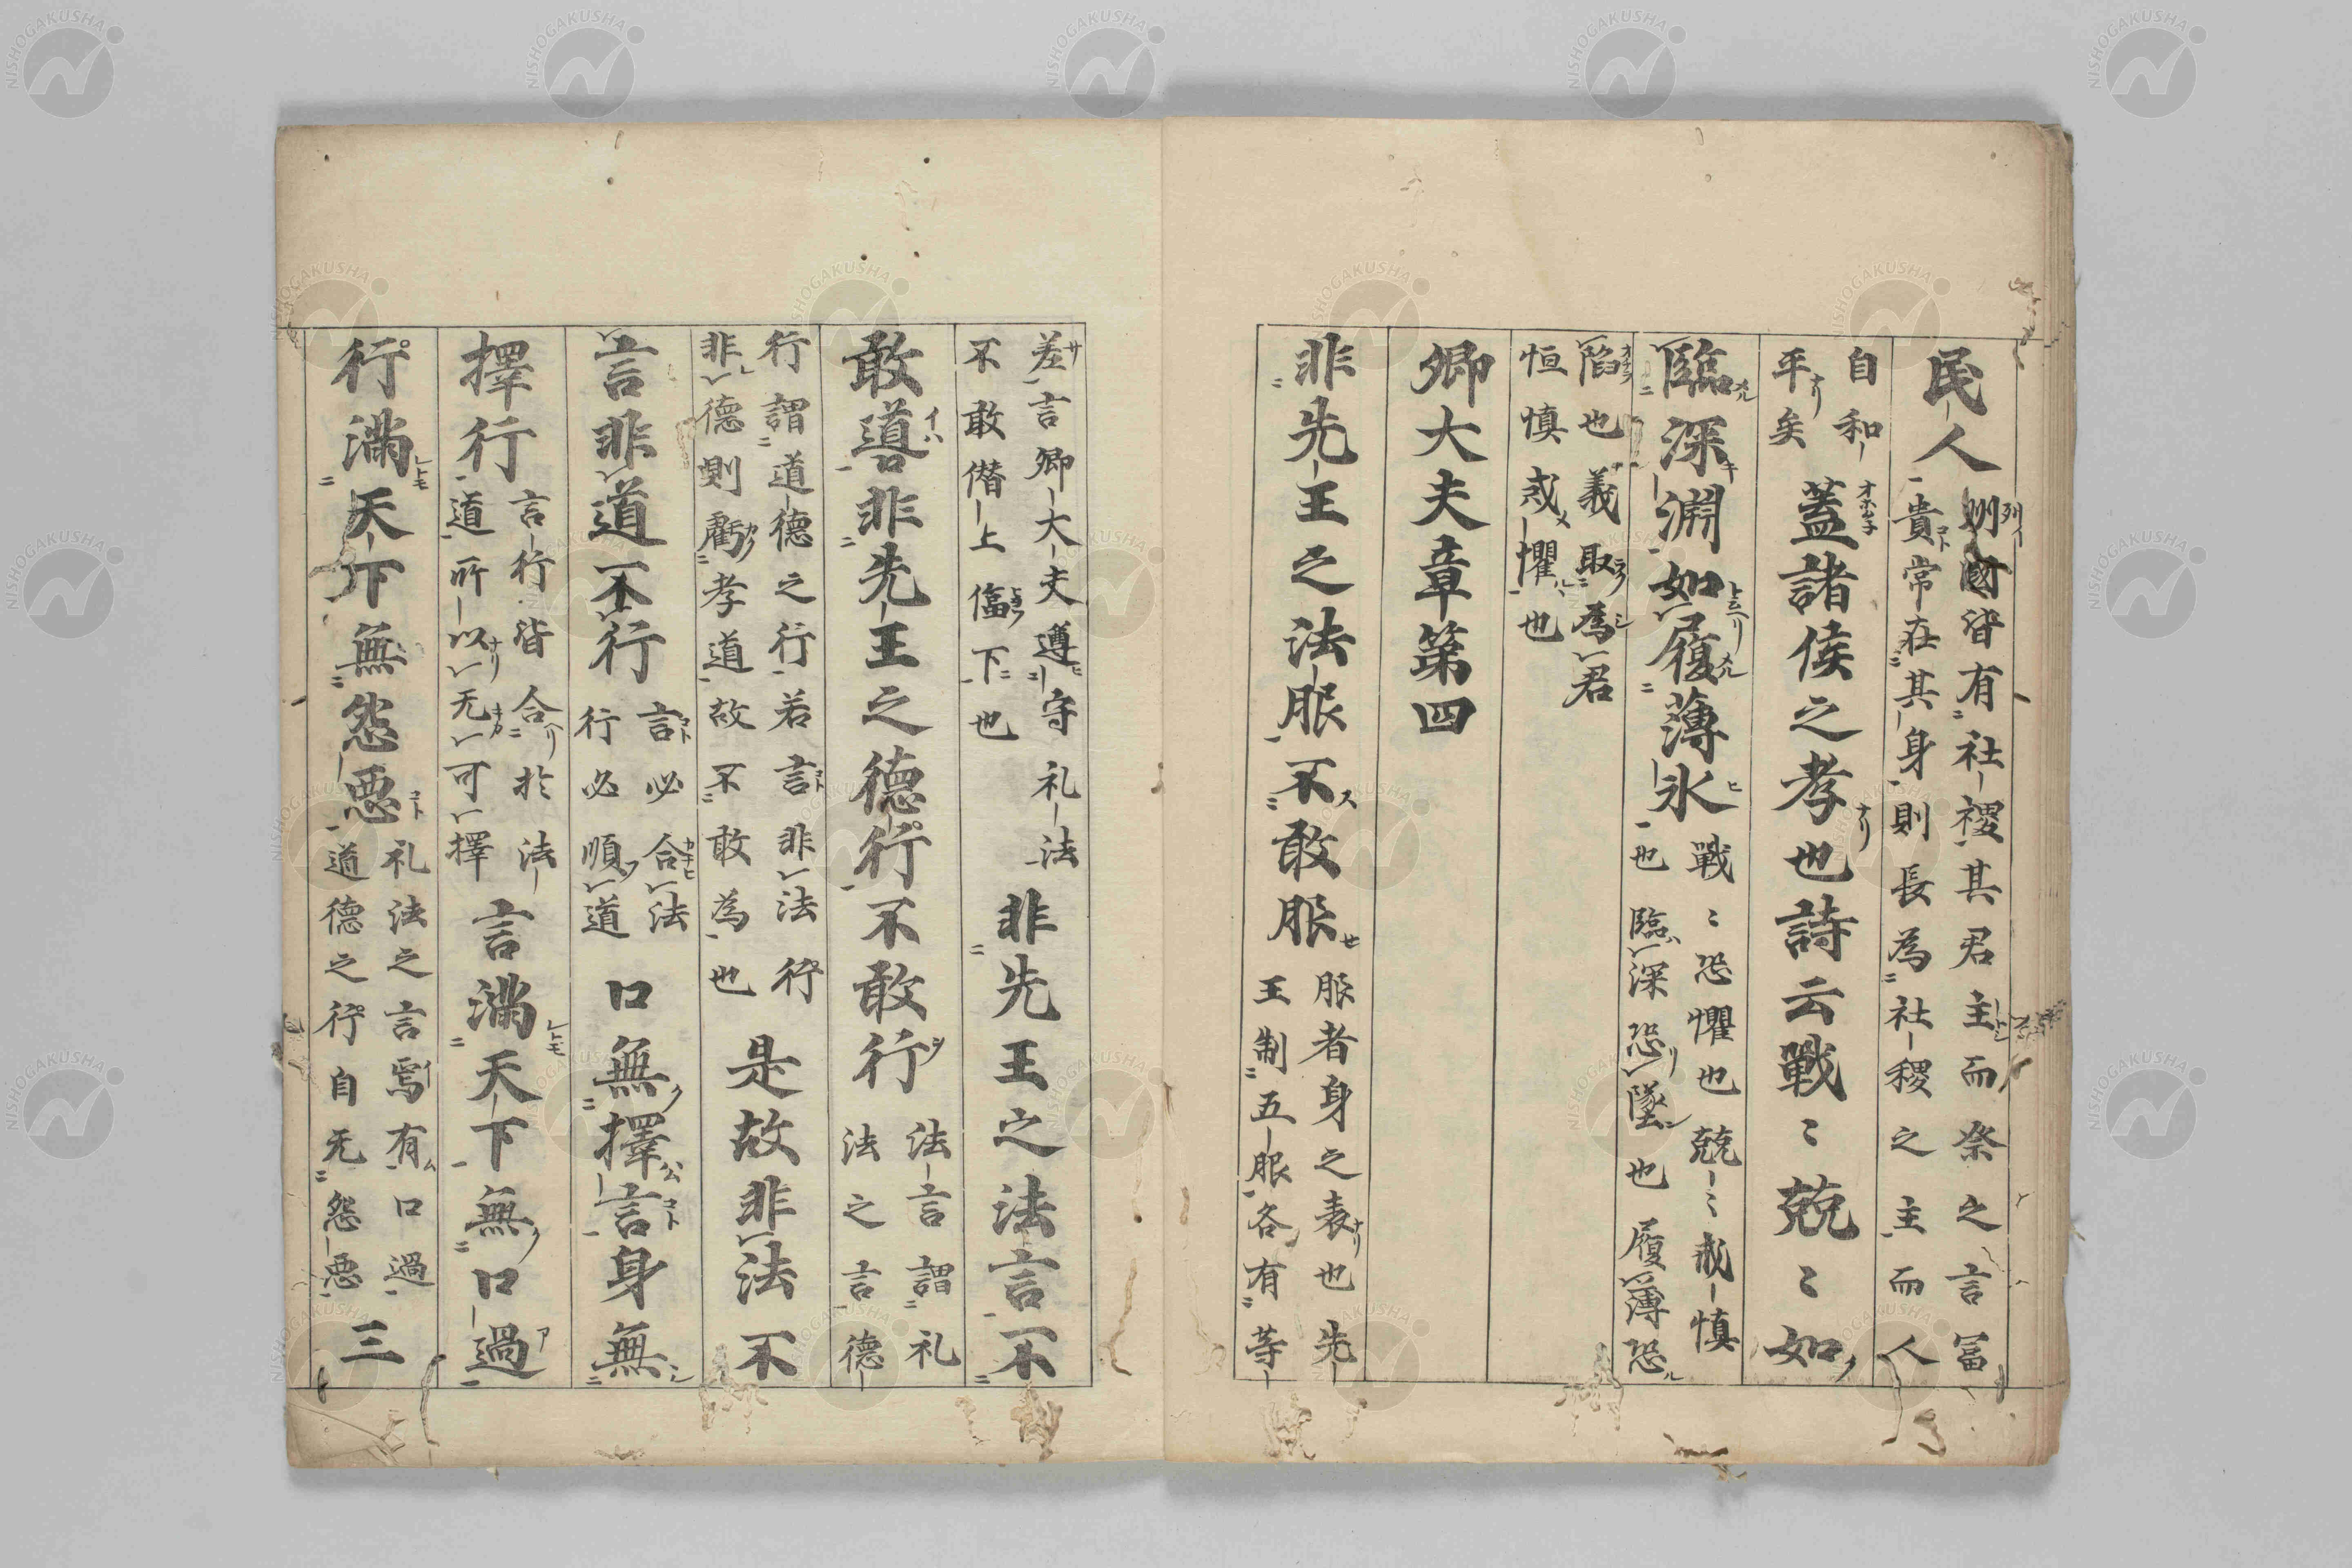 民人
國皆有社稷其君主而祭之言冨
貴常在其身則長為社稷之主而人
自和
平矣
蓋諸侯之孝也詩云戰〻兢〻如
臨深渊如履薄氷
戰〻恐懼也兢〻戒慎
也臨深恐墜也履薄恐
陷也義取為君
恒慎戒懼也
卿大夫章第四
非先王之法服不敢服
服者身之表也先
王制五服各有等
差言卿大夫遵守礼法
不敢僣上偪下也
非先王之法言不
敢噵非先王之德行不敢行
法言謂礼
法之言德
行謂道德之行若言非法行
非德則虧孝道故不敢為也
是故非法不
言非道不行
言必合法
行必順道
口無擇言身無
擇行
言行皆合於法
道所以无可擇
言滿天下無口過
行滿天下無怨悪
礼法之言焉有口過
道德之行自无怨悪
三
NISHOGAKUSHA